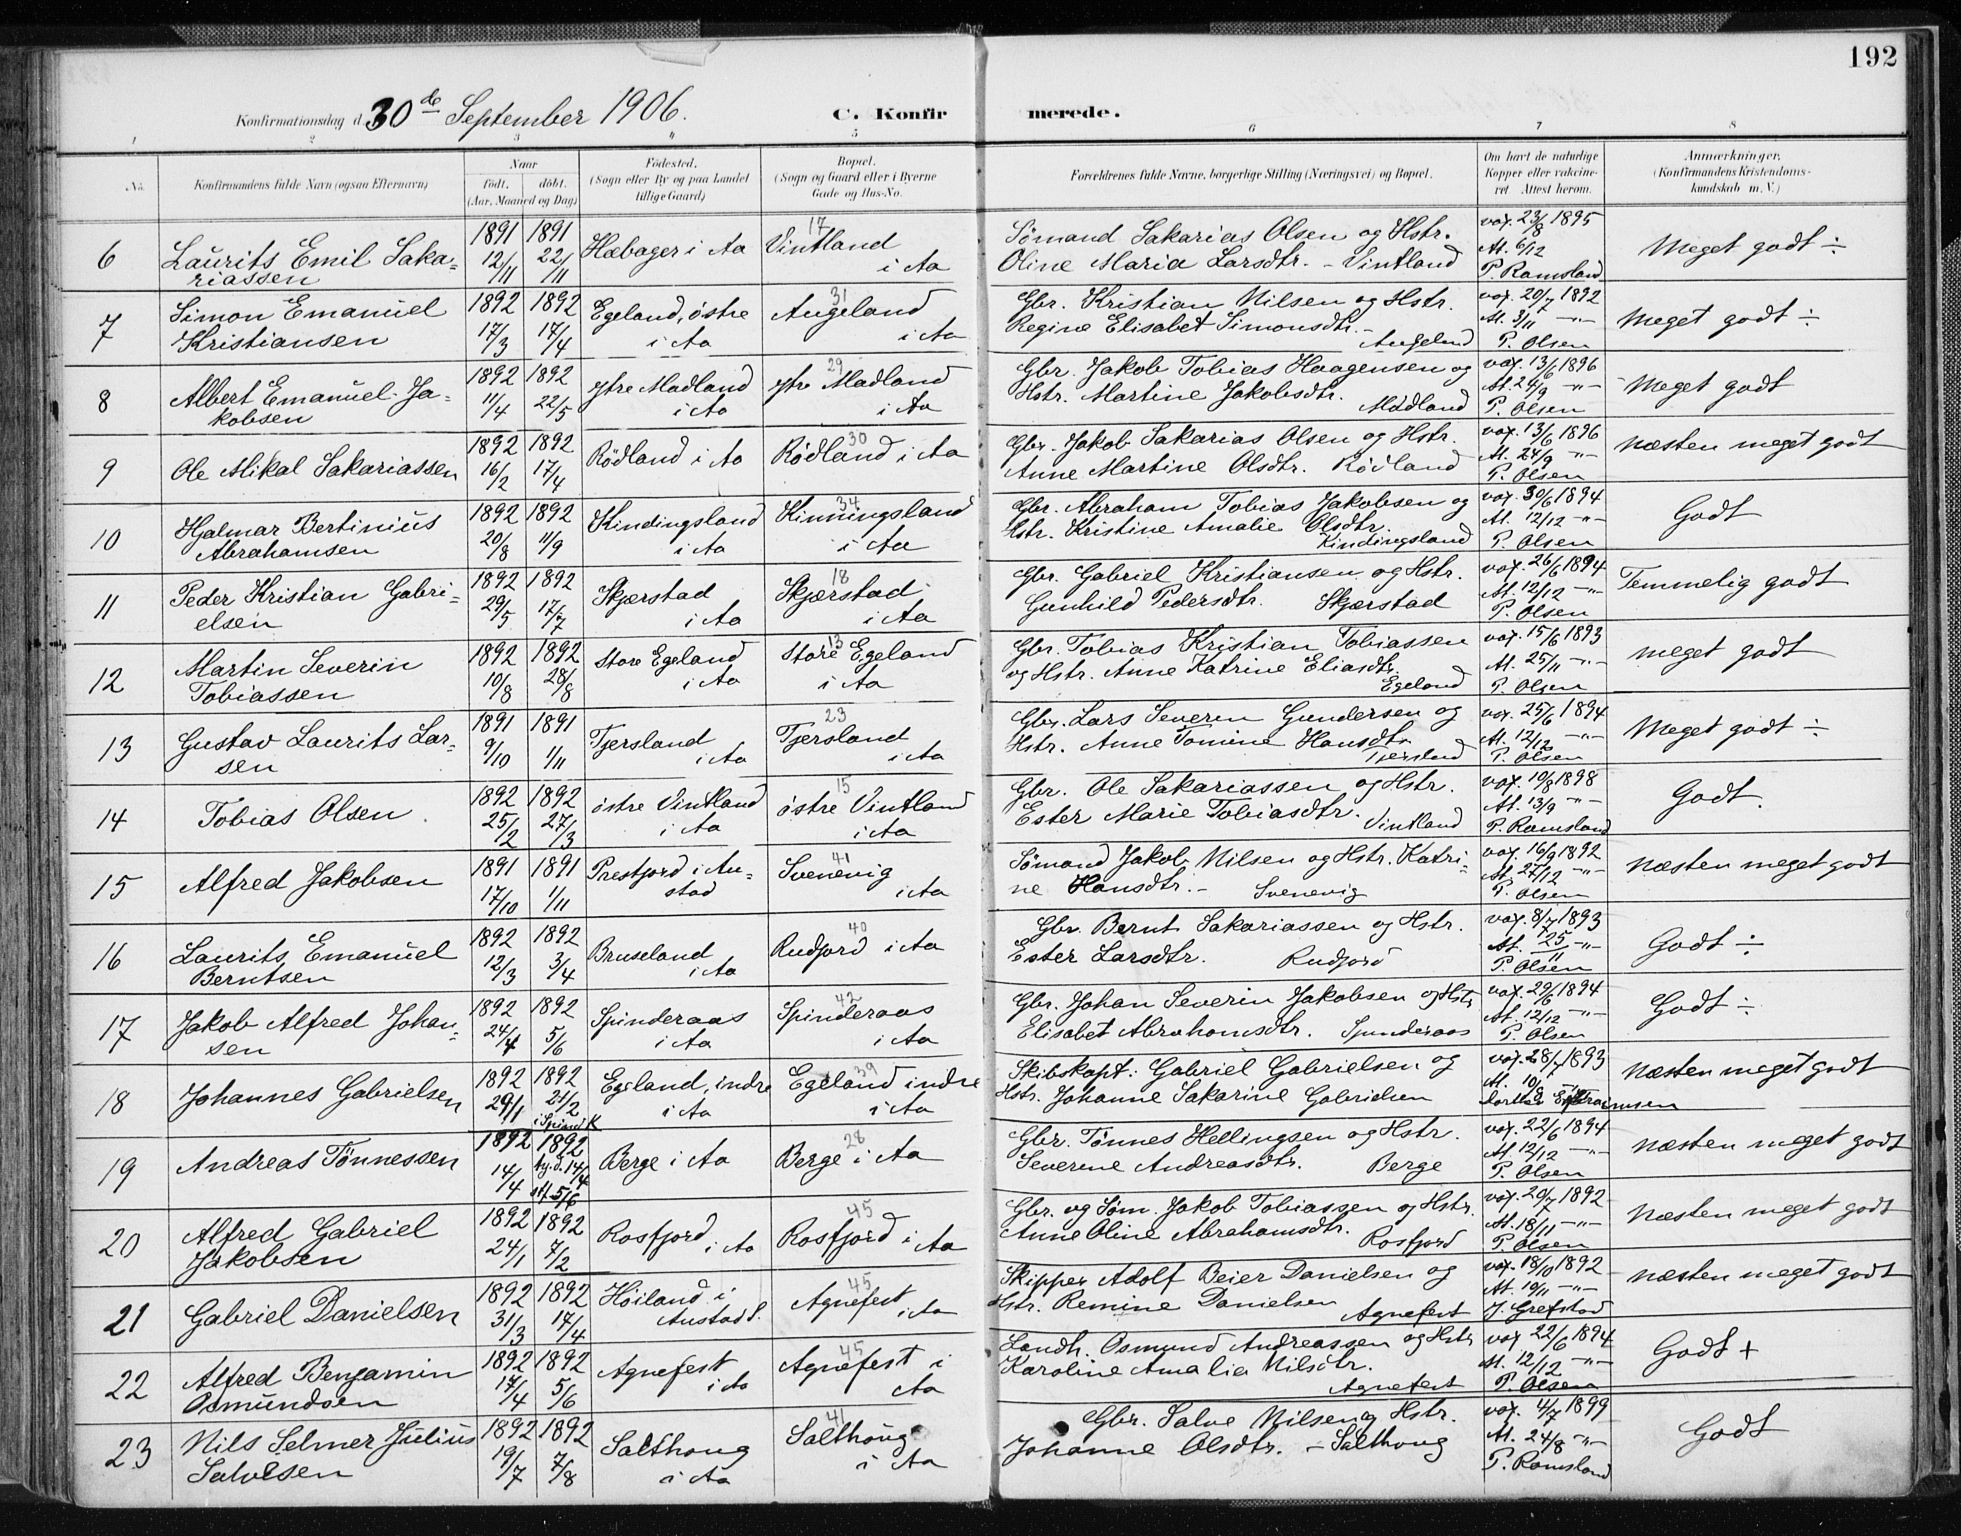 192
Konfirmationsdag d. 30de September 1906. C. Konfir merede.
1 2 3 4 5 6 7 8
No. Konfirmandens fulde Navn (ogsaa Efternavn) Naar født. døbt. (Aar, Maaned og Dag) Fødested. (Sogn eller By og paa Landet tillige Gaard) Bopæl. (Sogn og Gaard eller i Byerne Gade og Hus-No. Forældrenes fulde Navne, borgerlige Stilling (Næringsvei) og Bopæl. Om havt de naturlige Kopper eller vaccineret Attest herom. Anmærkninger. (Konfirmandens Kristendomskundskab m. V.)
6 Laurits Emil Sakariassen 1891 12/11 1891 22/11 Hæbager i Aa 17 Vintland i Aa Sømand Sakarias Olsen og Hstr. Oline Maria Larsdtr. - Vintland vax. 23/8 1895 At. 6/12 P. Ramsland Meget godt ÷
7 Simon Emanuel Kristiansen 1892 17/3 1892 17/4 Egeland, østre i Aa 31 Augeland i Aa Gbr. Kristian Nilsen og Hstr. Regine Elisabet Simonsdtr. - Augeland vax. 20/7 1892 At. 3/11 -"- P. Olsen Meget godt ÷
8 Albert Emanuel Jakobsen 1892 11/4 1892 22/5 ytre Madland i Aa 29 ytre Madland i Aa Gbr. Jakob Tobias Haagensen og Hstr. Martine Jakobsdtr. Madland vax. 13/6 1896 At. 24/9 -"- P. Olsen Meget godt
9 Ole Mikal Sakariassen 1892 16/2 1892 17/4 Rødland i Aa 30 Rødland i Aa Gbr. Jakob Sakarias Olsen og Hstr. Anne Martine Olsdtr. Rødland vax. 13/6 1896 At. 24/9 -"- P. Olsen næsten meget godt
10 Hjalmar Bertinius Abrahamsen 1892 20/8 1892 11/9 Kindingsland i Aa 34 Kinningsland i Aa Gbr. Abraham Tobias Jakobsen og Hstr. Kristine Amalie Olsdtr. Kindingsland vax. 30/6 1894 At. 12/12 -"- P. Olsen Godt
11 Peder Kristian Gabrielsen 1892 29/5 1892 17/7 Skjærstad i Aa 18 Skjærstad i Aa Gbr. Gabriel Kristiansen og Hstr. Gunhild Pedersdtr. Skjærstad vax. 26/6 1894 At. 12/12 -"- P. Olsen Temmelig godt
12 Martin Severin Tobiassen 1892 10/8 1892 28/8 Store Egeland i Aa 13 Store Egeland i Aa Gbr. Tobias Kristian Tobiassen og Hstr. Anne Katrine Eliasdtr. Egeland vax. 15/6 1893 At. 25/11 -"- P. Olsen meget godt
13 Gustav Laurits Larsen 1891 9/10 1891 1/11 Tjersland i Aa 23 Tjersland i Aa Gbr. Lars Severin Gundersen og Hstr. Anne Tomine Hansdtr. Tjersland vax. 25/6 1894 At. 12/12 -"- P. Olsen Meget godt ÷
14 Tobias Olsen. 1892 25/2 1892 27/3 østre Vintland i Aa 15 østre Vintland i Aa Gbr. Ole Sakariassen og Hstr. Ester Marie Tobiasdtr. Vintland vax. 10/8 1898 At. 13/9 -"- P. Ramsland Godt.
15 Alfred Jakobsen 1891 17/10 1891 1/11 Prestfjord i Austad 41 Svenevig i Aa Sømand Jakob Nilsen og Hstr. Katrine Hansdtr. - Svenevig vax. 16/9 1892 At. 27/12 -"- P. Olsen Næsten meget godt
16 Laurits Emanuel Berntsen 1892 12/3 1892 3/4 Bruseland i Aa 40 Rudjord i Aa Gbr. Bernt Sakariassen og Hstr. Ester Larsdtr. Rudjord vax. 8/7 1893 At. 25/11 -"- P. Olsen Godt ÷
17 Jakob Alfred Johansen 1892 24/4 1892 5/6 Spinderaas i Aa 42 Spinderaas i Aa Gbr. Johan Severin Jakobsen og Hstr. Elisabet Abrahamsdtr. Spinderaas vax. 29/6 1894 At. 12/12 -"- P. Olsen Godt ÷
18 Johannes Gabrielsen 1892 29/1 1892 21/2 i Spind K Egeland, indre i Aa 39 Egeland indre i Aa Skibskapt: Gabriel Gabrielsen og Hstr. Johanne Sakarine Gabrielsen vax. 28/7 1893 At. 10/9 -"- næsten meget godt
19 Andreas Tønnessen 1892 14/4 1892 hj.d. 14/4 st.f. 5/6 Berge i Aa 28 Berge i Aa Gbr. Tønnes Hellingsen og Hstr. Severine Andreasdtr. Berge vax. 22/6 1894 At. 12/12 -"- P. Olsen næsten meget godt
20 Alfred Gabriel Jakobsen 1892 24/1 1892 7/2 Rosfjord i Aa 45 Rosfjord i Aa Gbr. og Søm. Jakob Tobiassen og Hstr. Anne Oline Abrahamsdtr. Rosfjord vax. 20/7 1892 At. 18/11 -"- P. Olsen næsten meget godt
21 Gabriel Danielsen 1892 31/3 1892 17/4 Høiland i Austad S. 45 Agnefest i Aa Skipper Adolf Beier Danielsen og Hstr. Remine Danielsen Agnefest vax. 18/10 1892 At. 19/11 -"- J. Grefstad næsten meget godt
22 Alfred Benjamin Osmundsen 1892 17/4 1892 5/6 Agnefest i Aa 45 Agnefest i Aa Landh. Osmund Andreassen og Hstr. Karoline Amalia Nilsdtr. Agnefest vax 22/6 1894 At. 12/12 -"- P. Olsen Godt +
23 Nils Selmer Julius Salvesen 1892 19/7 1892 7/8 Salthoug i Aa 41 Salthoug i Aa Gbr. Salve Nilsen og Hstr. Johanne Olsdtr. - Salthoug vax. 4/7 1899 At. 24/8 -"- P. Ramsland Godt